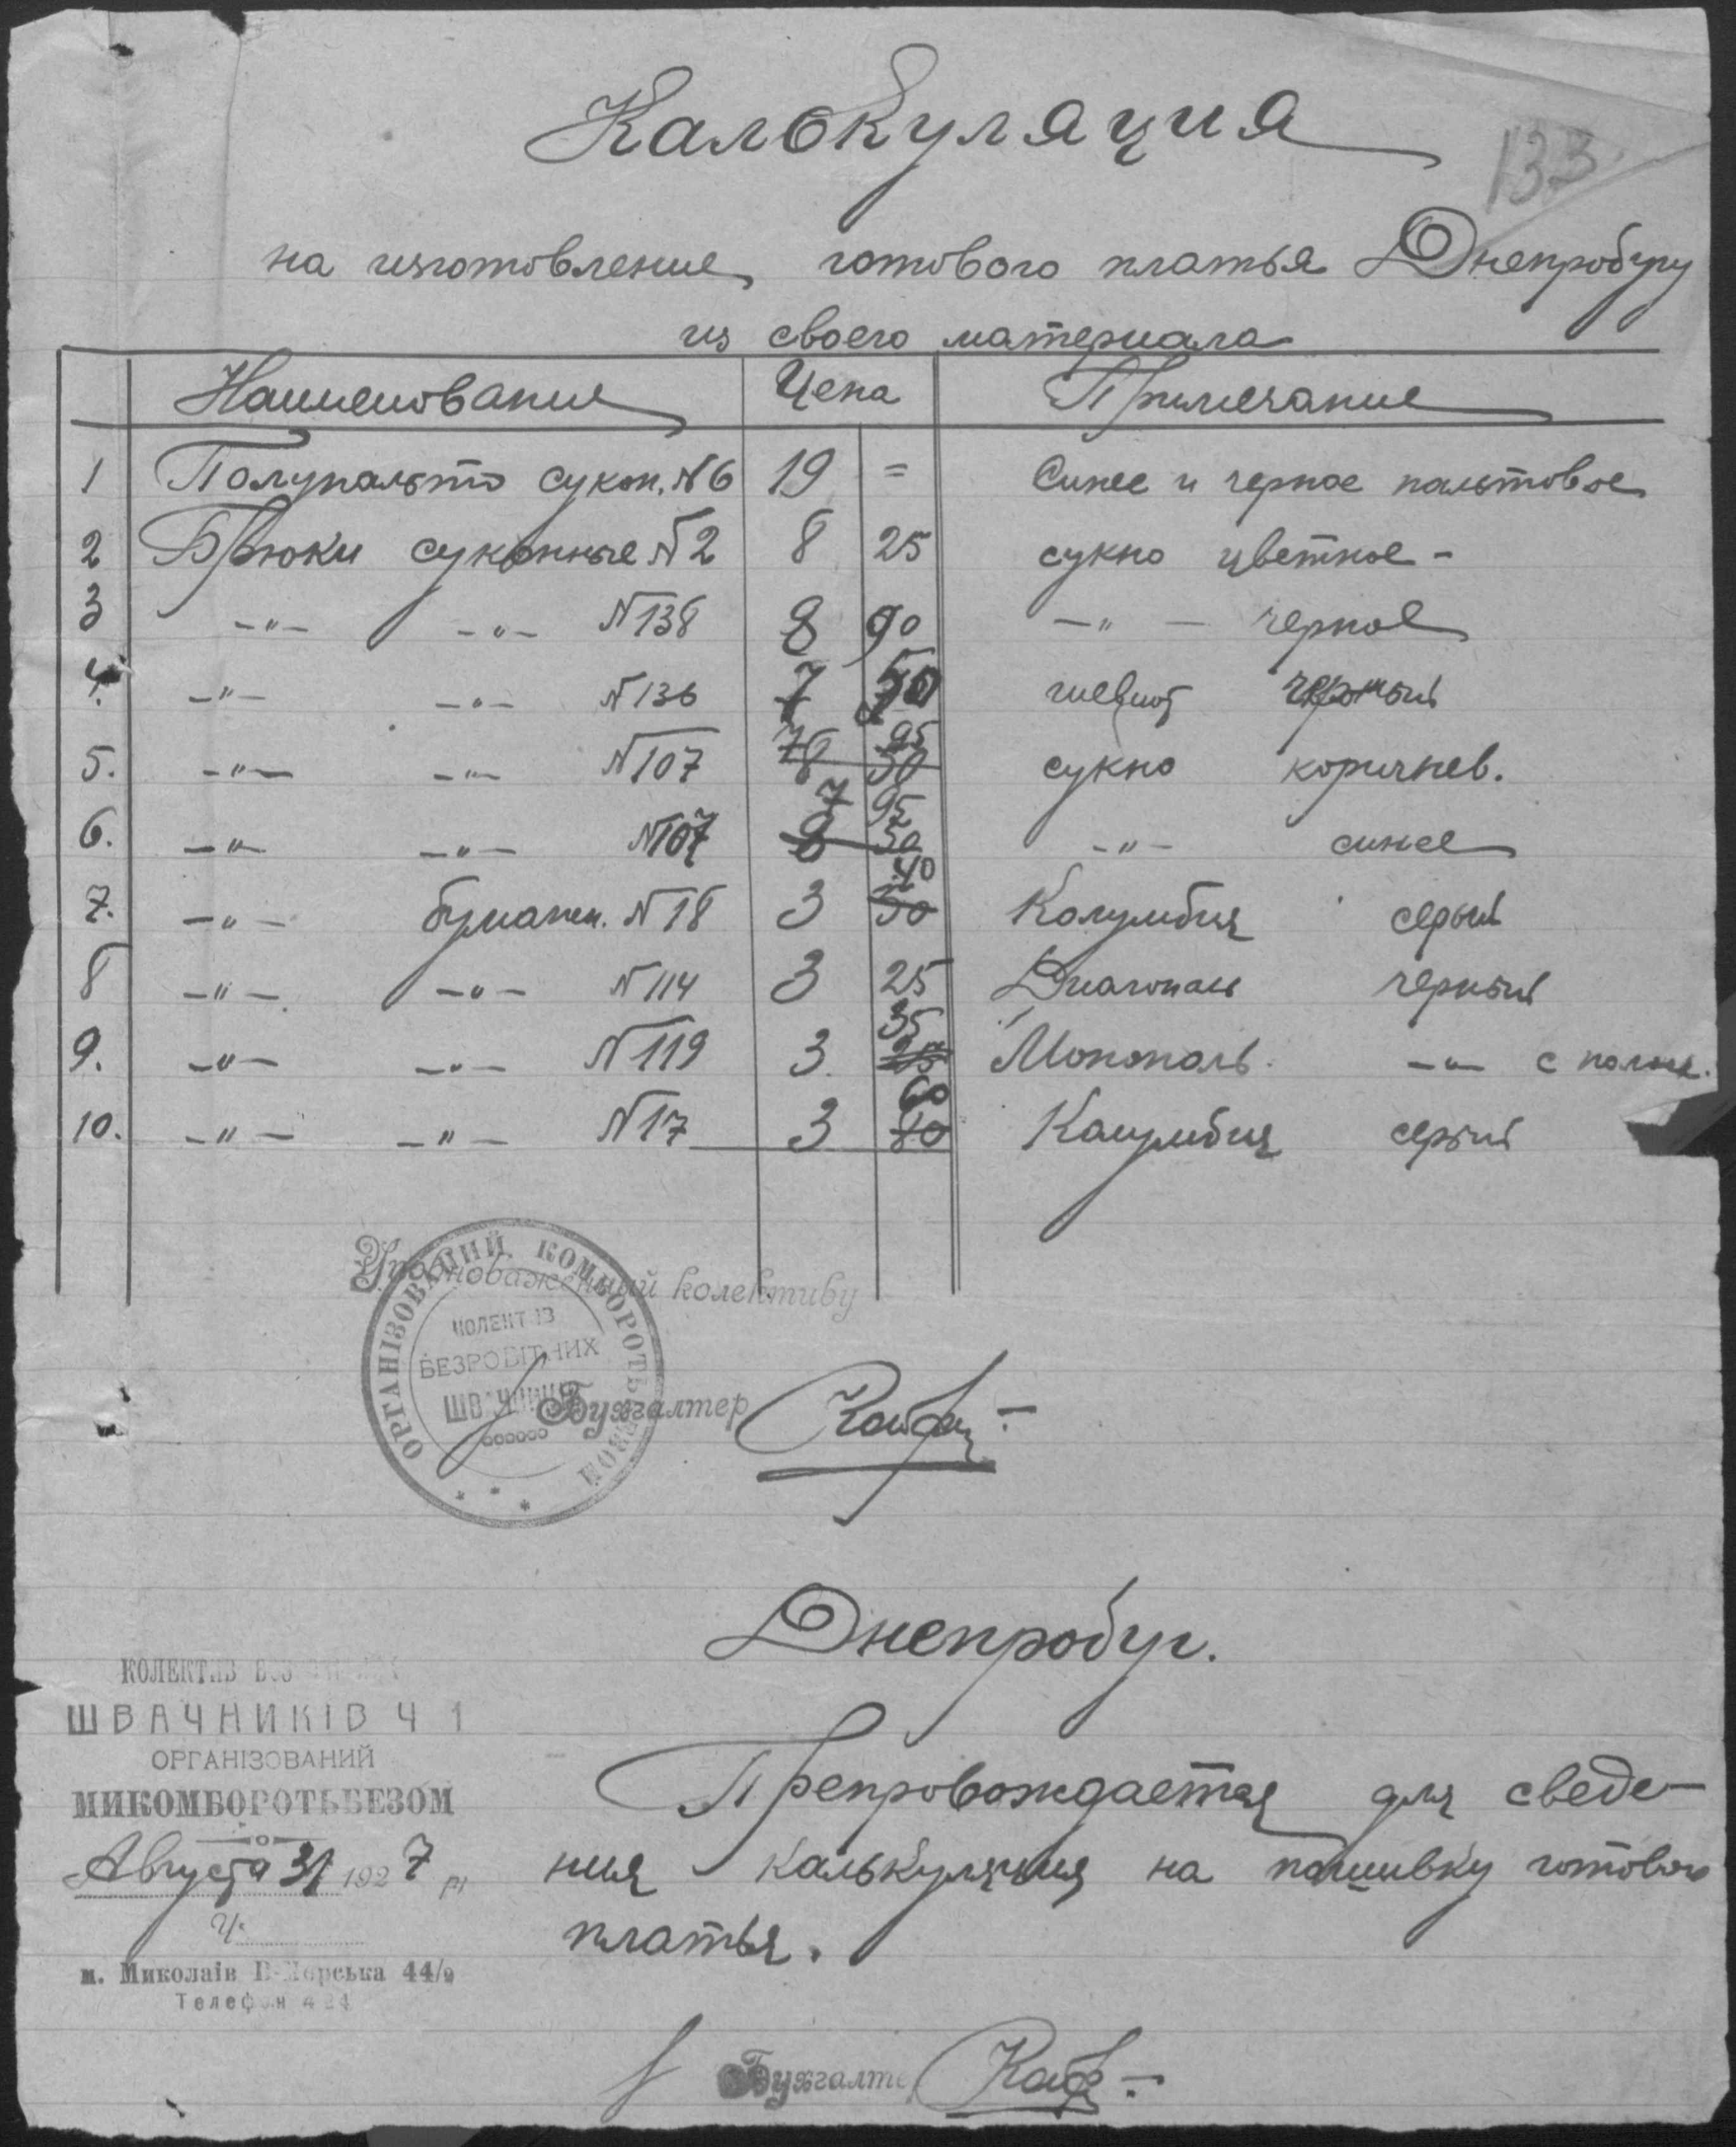 Калькуляция
133
на изготовление готового платья Днепробугу
из своего материала
Наименование Цена Примечание
1 Полупальто сукон. №6 19 = Синее и черное пальтовое
2 Брюки суконные №2 8 25 сукно цветное -
3 -"- -"- №138 8 90 -"- черное
4. -"- -"- №136 7 50 шевиот черный
5. -"- -"- №107 7 95 сукно коричнев.
6. -"- -"- №107 7 95 -"- синее
7. -"- бумажн. №18 3 40 Колумбия серый
8 -"- -"- №114 3 25 Диагональ черный
9. -"- -"- №119 3. 35 Монополь -"- с полоск.
10. -"- -"- №17 3 60 Колумбия серый
Уповноважений колективу
ОРГАНІЗОВАНИЙ КОМБОРОТЬБЕЗОМ
КОЛЕКТ ІЗ
БЕЗРОБІТНИХ
Бухгалтер
Днепробуг.
КОЛЕКТИВ
ШВАЧНИКІВ Ч 1
ОРГАНІЗОВАНИЙ
МИКОМБОРОТЬБЕЗОМ
Августа 31 1927 р.
Ч.
м. Миколаїв В-Морська 44/
Телефон 424
Препровождается для сведе-
ния калькуляция на пошивку готового
платья.
Бухгалтер